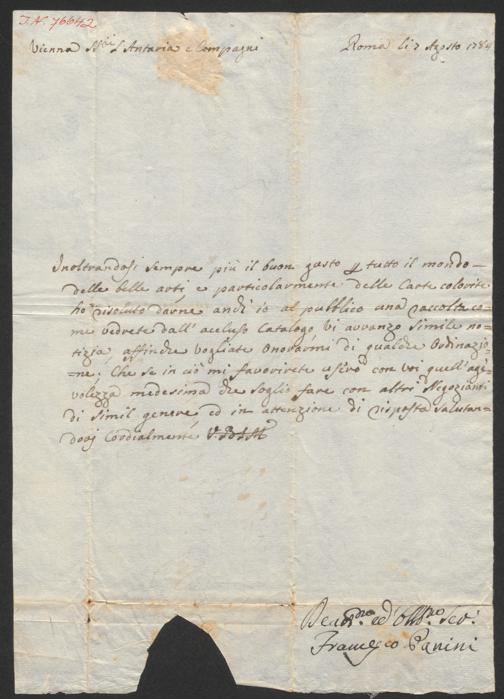 I.N. 76642
Vienna SS.ri L'Antaria e Compagni Roma li 7 Agosto 1784
Inoltrandosi sempre più il buon gusto p tutto il mondo
delle belle arti, e particolarmente delle Carte colorite
ho risoluto darne anch'io al pubblico una raccolta co=
me vedrete dall'acclusо Catalogo Vi avvanzo simile no=
tizia affinche vogliate Onorarmi di qualche Ordinazio=
=ne: Che se in ciò mi favorirete userò con voi quell'age=
volezza medesima che soglio fare con altri Negozianti
di Simil genere, ed in attenzione di risposta salutan=
dovi Cordialmente
Francesco Panini